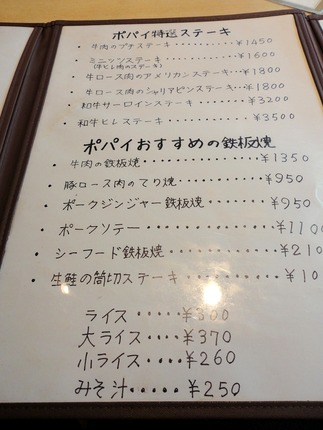 ポパイ特選ステーキ
・牛肉のプチステーキ・・・・・・・・・・¥1450
・ミニッツステーキ・・・・・・・・・・¥1600
(牛ヒレ肉のステーキ)
・牛ロース肉のアメリカンステーキ・・・¥1800
・牛ロース肉のシャリアピンステーキ・・・¥1800
・和牛サーロインステーキ・・・・・・¥3200
・和牛ヒレステーキ・・・・・・・・¥3500
ポパイおすすめの鉄板焼
・牛肉の鉄板焼・・・・・・・・・・・・¥1350
・豚ロース肉のてり焼・・・・・・・・¥950
・ポークジンジャー鉄板焼・・・・・・¥950
・ポークソテー・・・・・・・・・・・¥1100
・シーフード鉄板焼・・・・・・・・・¥210
・生鮭の筒切ステーキ・・・・・・・・¥10
ライス・・・・・¥300
大ライス・・・・¥370
小ライス・・・・¥260
みそ汁・・・・・¥250